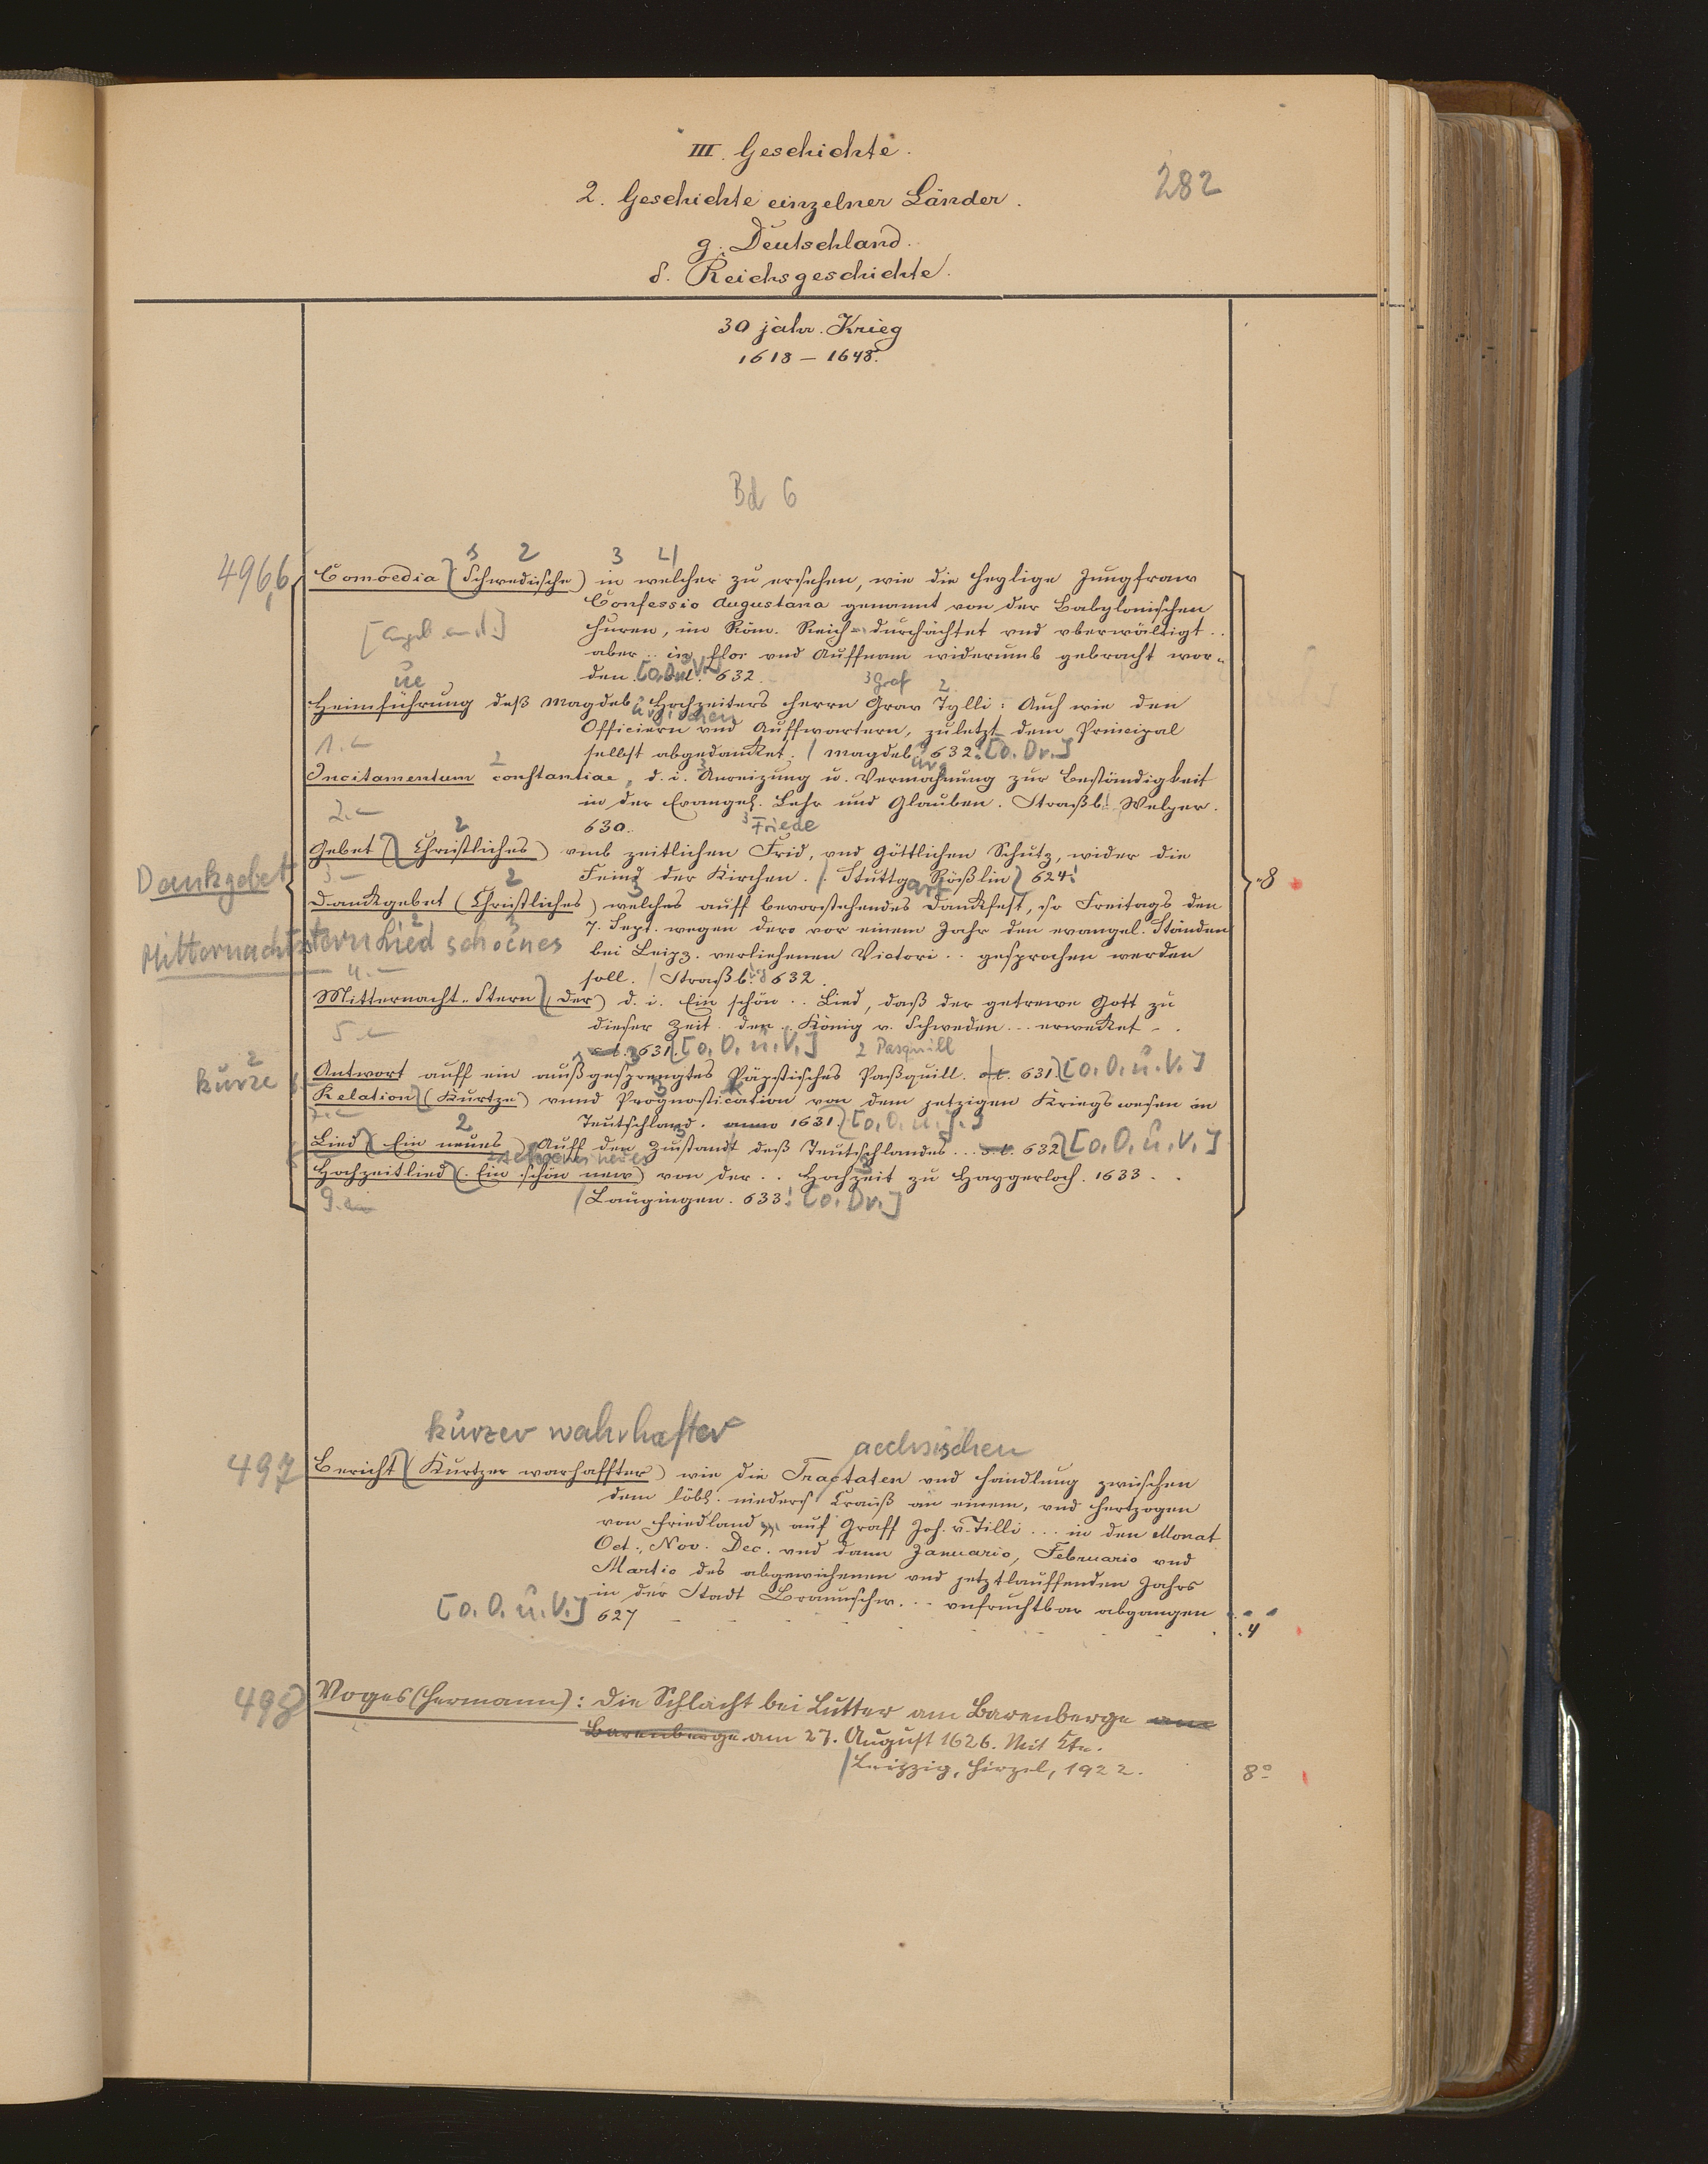 III. Geschichte.
282
2. Geschichte einzelner Länder.
g. Deutschland.
δ. Reichsgeschichte.
30 jähr. Krieg
1618 – 1648.
Bd 6
496,6
Comoedia (Schwedische) in welcher zu ersehen, wie die heylige Jungfraw
Confessio Augustana genannt von der Babylonischen
Huren, im Röm. Reich durchächtet vnd vberwältigt..
aber .. in flor vnd Auffnam widerumb gebracht wor-
den. [o.O.u.V.] 632.
Heimführung deß Magdeb. Hochzeiters Herrn Grav Tylli: Auch wie den
Officiern vnd Auffwartern, zuletzt dem Principal
selbst abgedancket. / Magdeb. 632. [o. Dr.]
Incitamentum constantiae, d. i. Anreizung u. Vermahnung zur Beständigkeit
in der Evangel. Lehr und Glauben. Straßb. Welper.
630.
3 Friede
Gebet (Christliches) vmb zeitlichen Frid, vnd Göttlichen Schutz, wider die
Feind der Kirchen. / Stuttgart Rößlin 624.
Dankgebet
Danckgebet (Christliches) welches auff bevorstehendes Danckfest, so Freitags den
7. Sept. wegen dero vor einem Jahr den evangel. Ständen
Mitternachtstern Lied schoenes
bei Leipz. verliehenen Victori .. gesprochen werden
soll. / Straßb. 632.
Mitternacht-Stern (der) d. i. Ein schön .. Lied, daß der getrewe Gott zu
dieser Zeit den .. König v. Schweden ... erwecket ..
631. [o. O. u. V.] 2 Pasquill
Antwort auff ein außgesprengtes Päpstisches Paßquill. s.l. 631 [o. O. u. V.]
kurze
Relation (Kurtze) vnnd Prognostication von dem jetzigen Kriegswesen in
Teutschland. anno 1631. [o. O. u. J.]
Lied (Ein neues) Auff den Zustandt deß Teutschlandes ... s.l. 632 [o. O. u. V.]
Hochzeitlied (Ein schön new) von der .. Hochzeit zu Haggerloch. 1633 ..
/ Laugingen. 633. [o. Dr.]
8
kurzer wahrhafter
aechsischen
497
Bericht (Kurtzer warhaffter) wie die Tractaten vnd Handlung zwischen
dem löbl. nieders. Craiß an einem, vnd Hertzogen
von Friedland auf Graff Joh. v. Tilli ... in den Monat
Oct., Nov. Dec. vnd dann Januario, Februario vnd
Martio des abgewichenen vnd jetztlauffenden Jahrs
in der Stadt Braunschw. ... vnfruchtbar abgangen
[o. O. u. V.] 627
4
498
Voges (Hermann): Die Schlacht bei Lutter am Barenberge am
Barenberge am 27. August 1626. Mit Kte.
/ Leipzig, Hirzel, 1922.
8°